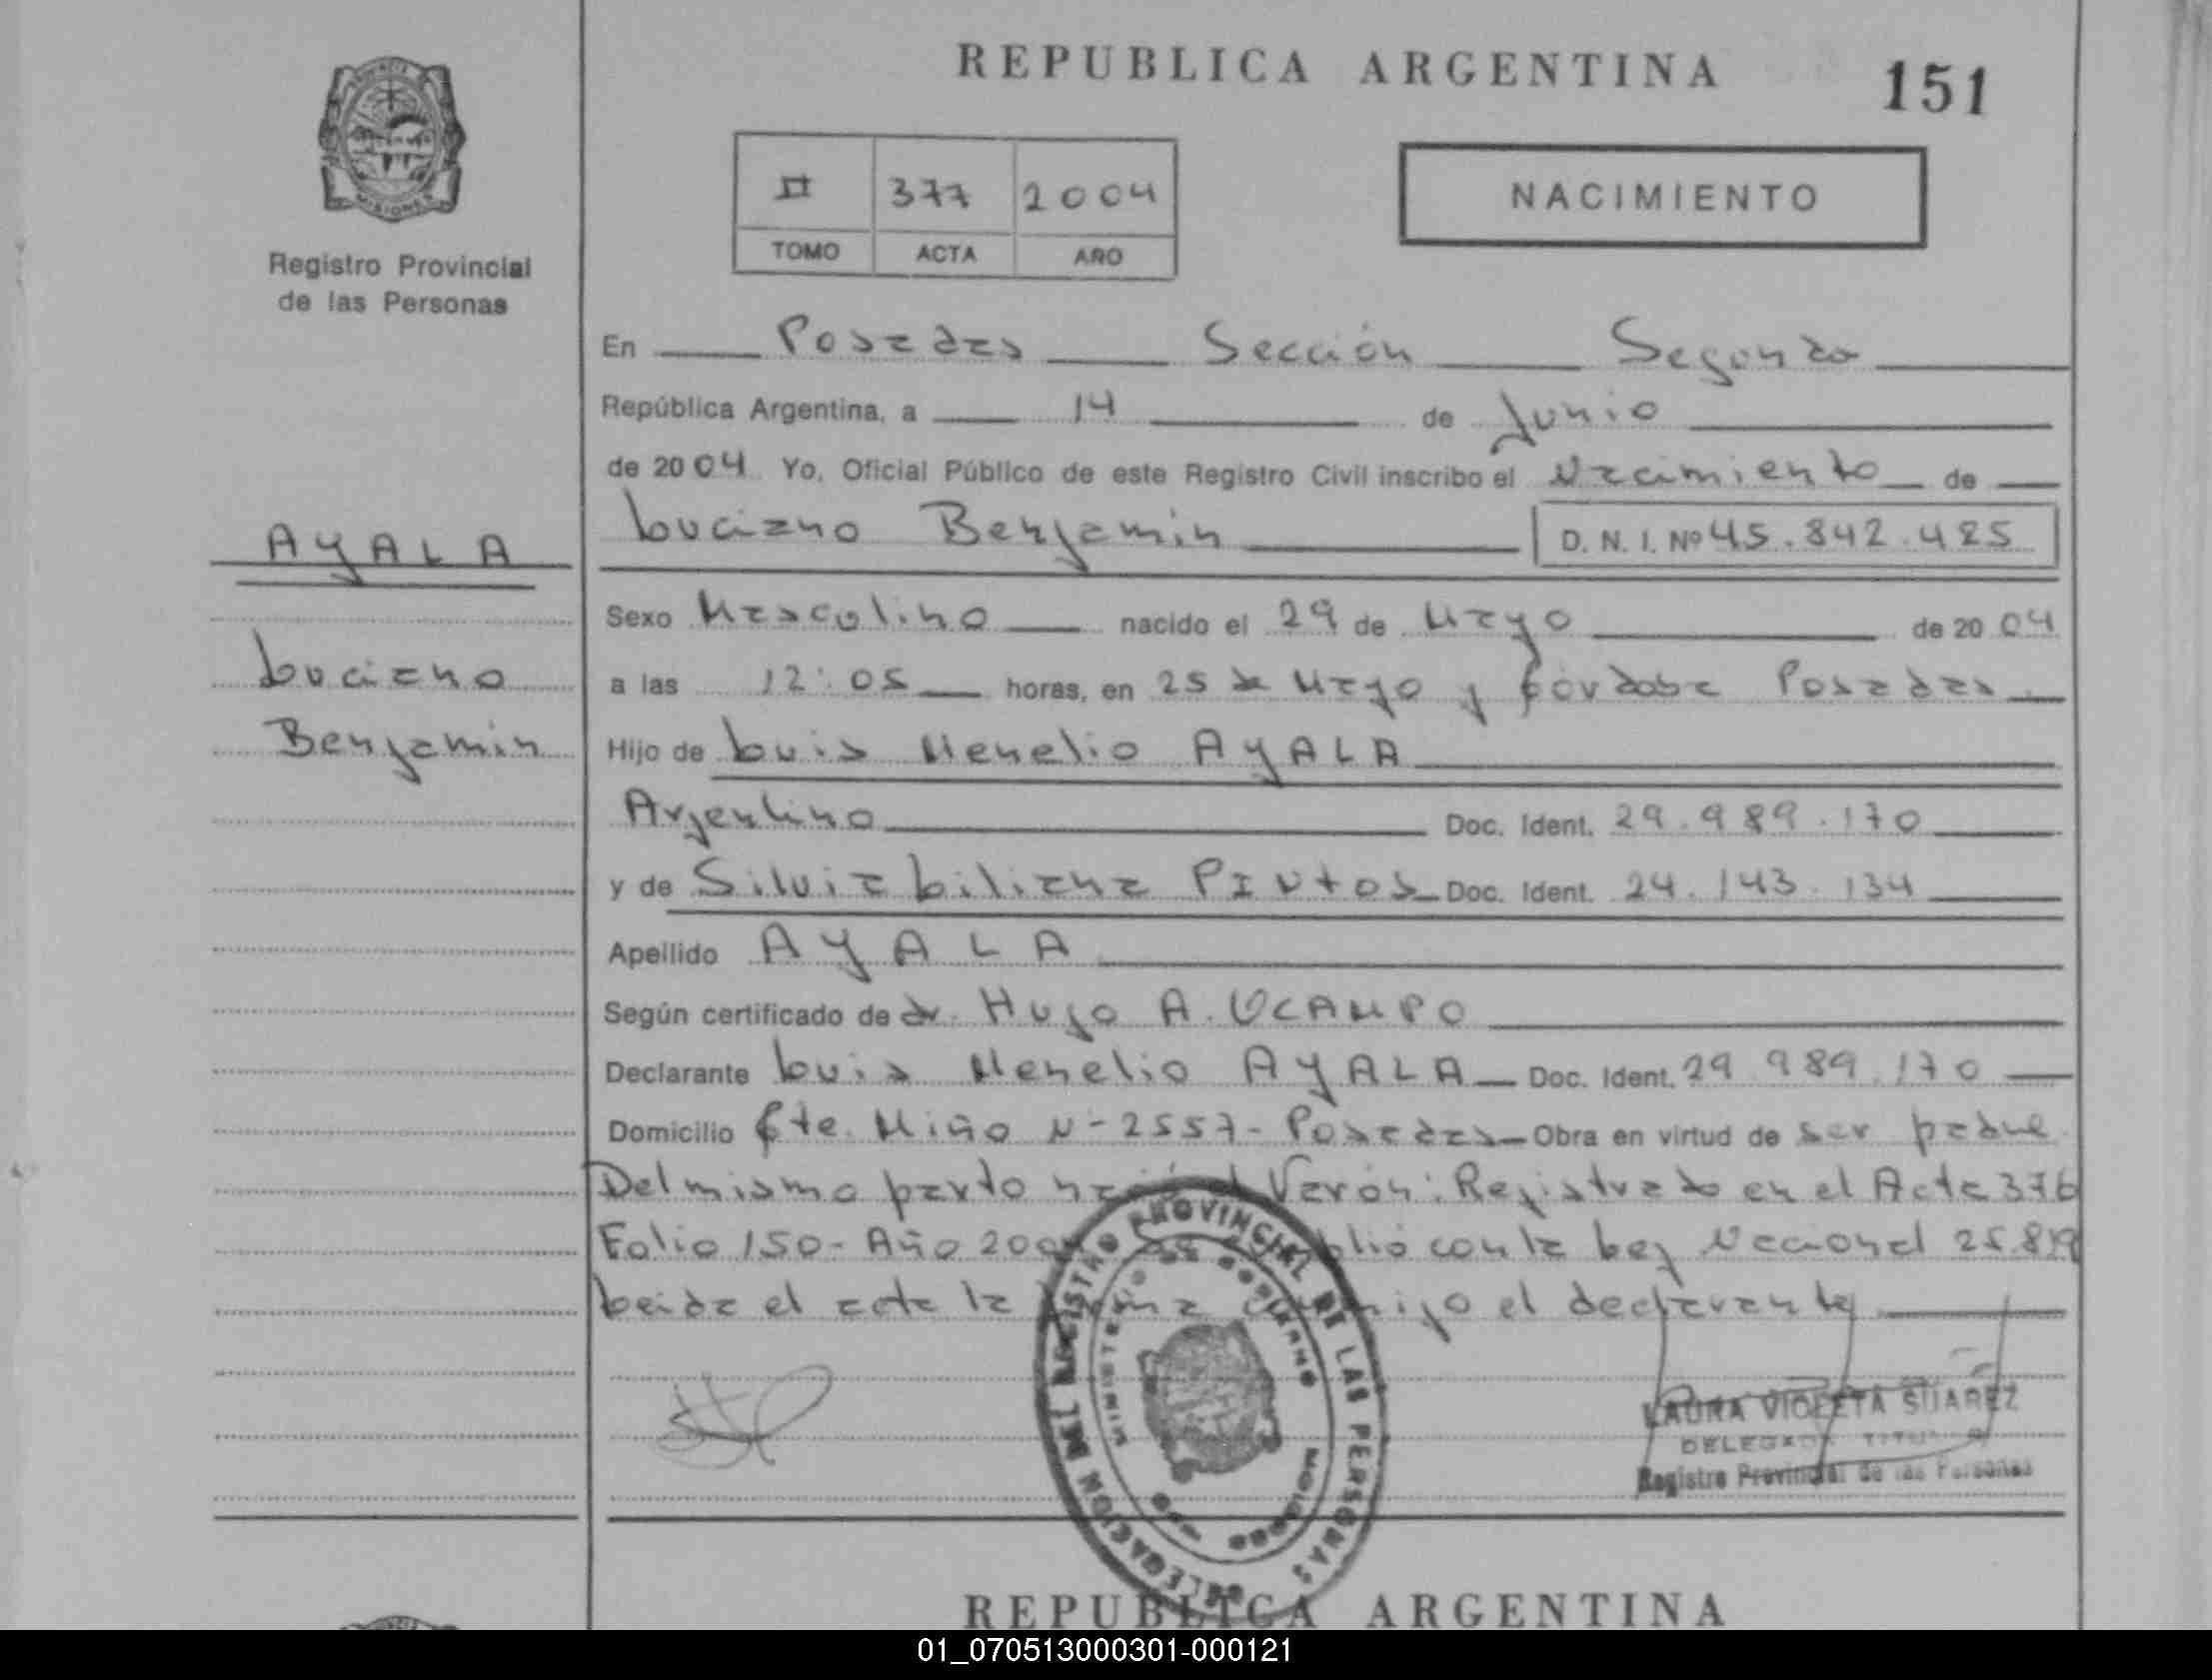 REPUBLICA ARGENTINA
151
MISIONES
Registro Provincial
de las Personas
II 377 2004
TOMO ACTA AÑO
NACIMIENTO
En Posadas Sección Segunda
República Argentina, a 14 de Junio
de 2004 Yo, Oficial Público de este Registro Civil inscribo el Nacimiento de
AYALA
Luciano Benjamin D. N. I. Nº 45.842.485
Sexo Masculino nacido el 29 de Mayo de 2004
Luciano
a las 12:05 horas, en 25 de Mayo y Córdoba Posadas
Benjamin
Hijo de Luis Menelio AYALA
Argentino Doc. Ident. 29.989.170
y de Silvia Liliana PINTOS Doc. Ident. 24.143.134
Apellido AYALA
Según certificado de dr. Hugo A. OCAMPO
Declarante Luis Menelio AYALA Doc. Ident. 29.989.170
Domicilio Cte. Miño N-2557- Posadas Obra en virtud de ser padre
Del mismo parto Varón: Registrado en el Acta 376
Folio 150- Año 2004 con la Ley Nacional 25.819
Leida el acta la firma el declarante
DELEGACION DEL REGISTRO PROVINCIAL DE LAS PERSONAS
MINISTERIO DE GOBIERNO
LAURA VIOLETA SUAREZ
DELEGADA TITULAR
Registro Provincial de las Personas
REPUBLICA ARGENTINA
01_070513000301-000121